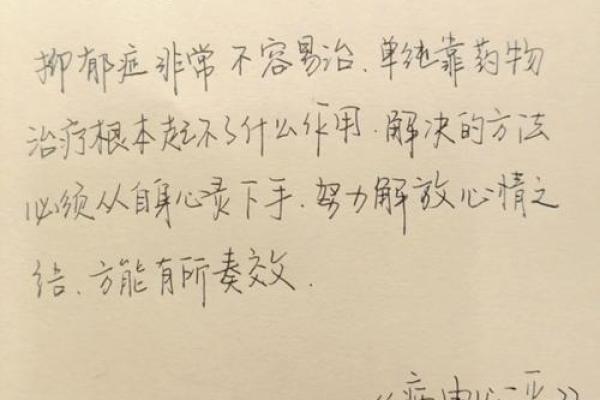 抑郁症非常不容易治、单纯靠药物
治疗根本起不了什么作用．解决的方法
必须从自身心灵下手．努力解放心情之
结、方能有所奏效．
《病由心